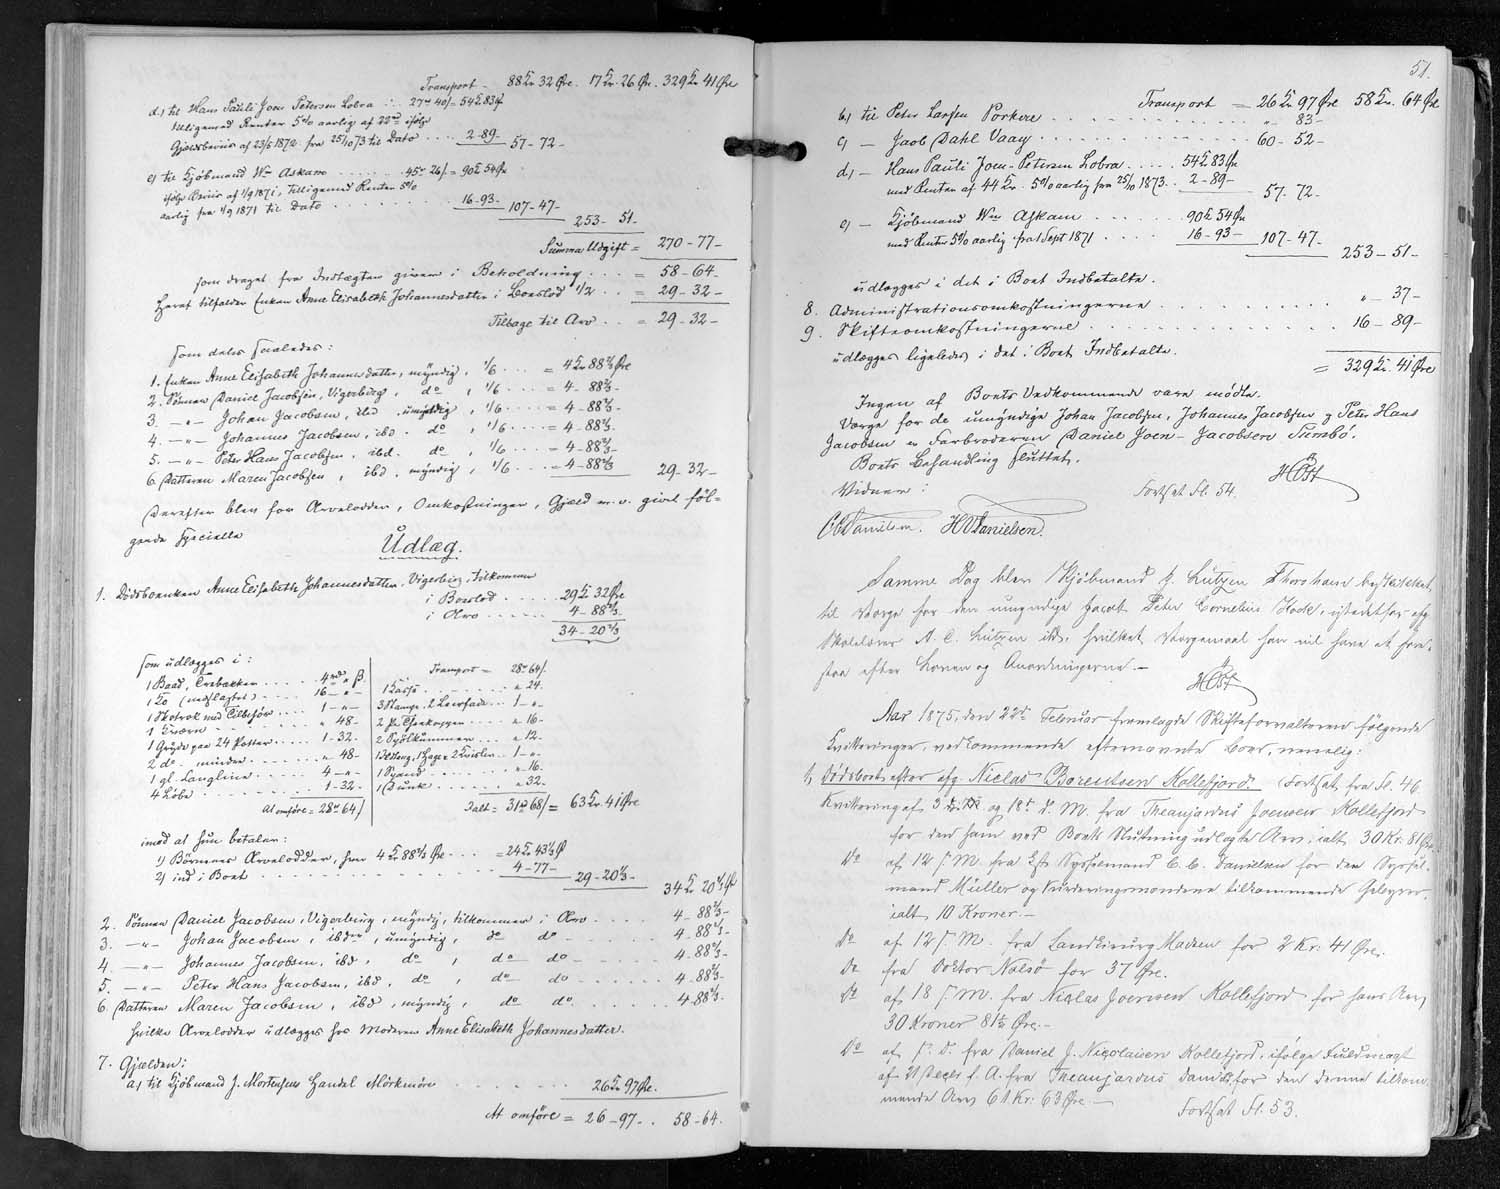 Transport 88 Kr. 32 Øre. 17 Kr. 26 Øre. 329 Kr. 41 Øre
d.) til Hans Pauli Joen Petersen Lobra 27rd 40/ = 54 Kr 83 Ø
tilligemed Renter 5% aarlig af 22rd ifølge
Gjældsbeviis af 23/5 1872 fra 25/10 73 til Dato 2-89- 57-72-
e) til Kjöbmand Wm Askam 45rd 26/ = 90 Kr 54 Øre
ifølge Beviis af 1/9 1871, tilligemed Renter 5%
aarlig fra 1/9 1871 til Dato 16-93- 107-47-
253-51.
Summa Udgift = 270-77-
som draget fra Indtægten giver i Beholdning = 58-64-
heraf tilfalder Enken Anne Elisabeth Johannesdatter i Boeslod 1/2 = 29-32-
Tilbage til Arv = 29-32-
som deles saaledes:
1. Enken Anne Elisabeth Johannesdatter, myndig, 1/6 = 4 Kr 88 2/3 Øre
2. Sönnen Daniel Jacobsen, Vigerbirg, do, 1/6 = 4-88 2/3-
3. -"- Johan Jacobsen, ibd. umyndig, 1/6 = 4-88 2/3-
4. -"- Johannes Jacobsen, ibd. do, 1/6 = 4-88 2/3-
5. -"- Peter Hans Jacobsen, ibd. do, 1/6 = 4-88 2/3-
6. Datteren Maren Jacobsen, ibd, myndig, 1/6 = 4-88 2/3 29-32-
Derefter blev for Arvelodder, Omkostninger, Gjæld m. v. givet föl-
gende specielle
Udlæg.
1. Dödsboenken Anne Elisabeth Johannesdatter, Vigerbirg, tilkommer
i Boeslod 29 Kr 32 Øre
i Arv 4-88 2/3
34-20 2/3
som udlægges i:
1 Baad, Trebakker 4rd " β.
1 Ko (nedslagtet) 16-"-
1 Skotrok med Tilbehör 1-"-
1 Kværn " 48-
1 Gryde paa 24 Potter 1-32-
2 do. mindre " 48-
1 gl. Langline 4-"-
4 Löbe 1-32-
At omföre = 28rd 64/
Transport = 28rd 64/.
1 Taffa " 24.
3 Stampe, 2 Leerfade 1-"-
2 " 16-
2 " 12.
1 Ildtang, 1 Hage 1-"-
1 Spand " 16-
1 Dunk " 32-
Ialt = 31rd 68/ = 63 Kr. 41 Øre
imod at hun betaler:
1) Börnenes Arvelodder, hver 4 Kr 88 2/3 Øre = 24 Kr 43 1/3 Ø
2) ind i Boet 4-77- 29-20 1/3- 34 Kr 20 2/3 Ø
2. Sönnen Daniel Jacobsen, Vigerbirg, myndig, tilkommer i Arv 4-88 2/3-
3. -"- Johan Jacobsen, ibdm, umyndig, do do 4-88 2/3-
4. -"- Johannes Jacobsen, ibd, do, do do 4-88 2/3
5. -"- Peter Hans Jacobsen, ibd, do, do do 4-88 2/3
6. Datteren Maren Jacobsen, ibd, myndig, do do 4-88 2/3-
hvilke Arvelodder udlægges hos Moderen Anne Elisabeth Johannesdatter.
7. Gjælden:
a.) til Kjöbmand J. Mortensens Handel Mörkmöre 26 Kr 97 Øre.
At omföre = 26-97- 58-64.
51.
Transport = 26 Kr 97 Øre 58 Kr. 64 Øre
b.) til Peter Larsen Porkere " 83-
c) - Jacob Dahl Vaag 60-52-
d.) - Hans Pauli Joen-Petersen Lobra 54 Kr 83 Øre
med Renter af 44 Kr. 5% aarlig fra 25/10 1873 2-89- 57-72-
e) - Kjöbmand Wm Askam 90 Kr 54 Øre
med Renter 5% aarlig fra 1 Sept 1871 16-93- 107-47- 253-51-
udlægges i det i Boet Indbetalte.
8. Administrationsomkostningerne "-37-
9. Skifteomkostningerne 16-89-
udlægges ligeledes i det i Boet Indbetalte.
= 329 Kr. 41 Øre
Ingen af Boets Vedkommende vare mödte.
Værge for de umyndige Johan Jacobsen, Johannes Jacobsen og Peter Hans
Jacobsen er Farbroderen Daniel Joen-Jacobsen Sumbö.
Boets Behandling sluttet.
HÖst
Vidner: Fortsat fl. 54.
Danielsen. H Danielsen.
Samme Dag blev Kjöbmand Lützen Thorshavn beskikket
til Værge for den umyndige Jacob Peter Cornelius Hock, istedetfor afg.
Skolelærer A. C. Lützen ibd., hvilket Værgemaal han vil have at fore-
staa efter Loven og Anordningerne.-
HÖst
Aar 1875, den 22de Februar fremlagde Skifteforvalteren følgende
Kvitteringer, vedkommende efternævnte Boer, nemlig:
1, Dödsboet efter afg. Niclas Borentsen Kollefjord. (Fortsat fra fl. 46.
Kvittering af 3 og 18 d. M. fra Theanjardus Joensen Kollefjord
for den ham ved Boets Slutning udlagte Arv, ialt 30 Kr. 81 Öre
Do af 12 f. M. fra Sysselmand C. C. Danielsen for den Syssel-
mand Müller og Vurderingsmændene tilkommende Gebyrer,
ialt 10 Kroner.-
Do af 12 f. M. fra Landkirurg Madsen for 2 Kr: 41 Øre.
Do fra Doktor Nolsö for 37 Øre.
Do af 18 f. M. fra Niclas Joensen Kollefjord for hans Arv,
30 Kroner 81 Øre.-
Do af s. D. fra Daniel J. Nicolaisen Kollefjord, ifölge Fuldmagt
af f. A. fra Theanjardus for den denne tilkom-
mende Arv 61 Kr: 63 Øre.-
Fortsat fl. 53.